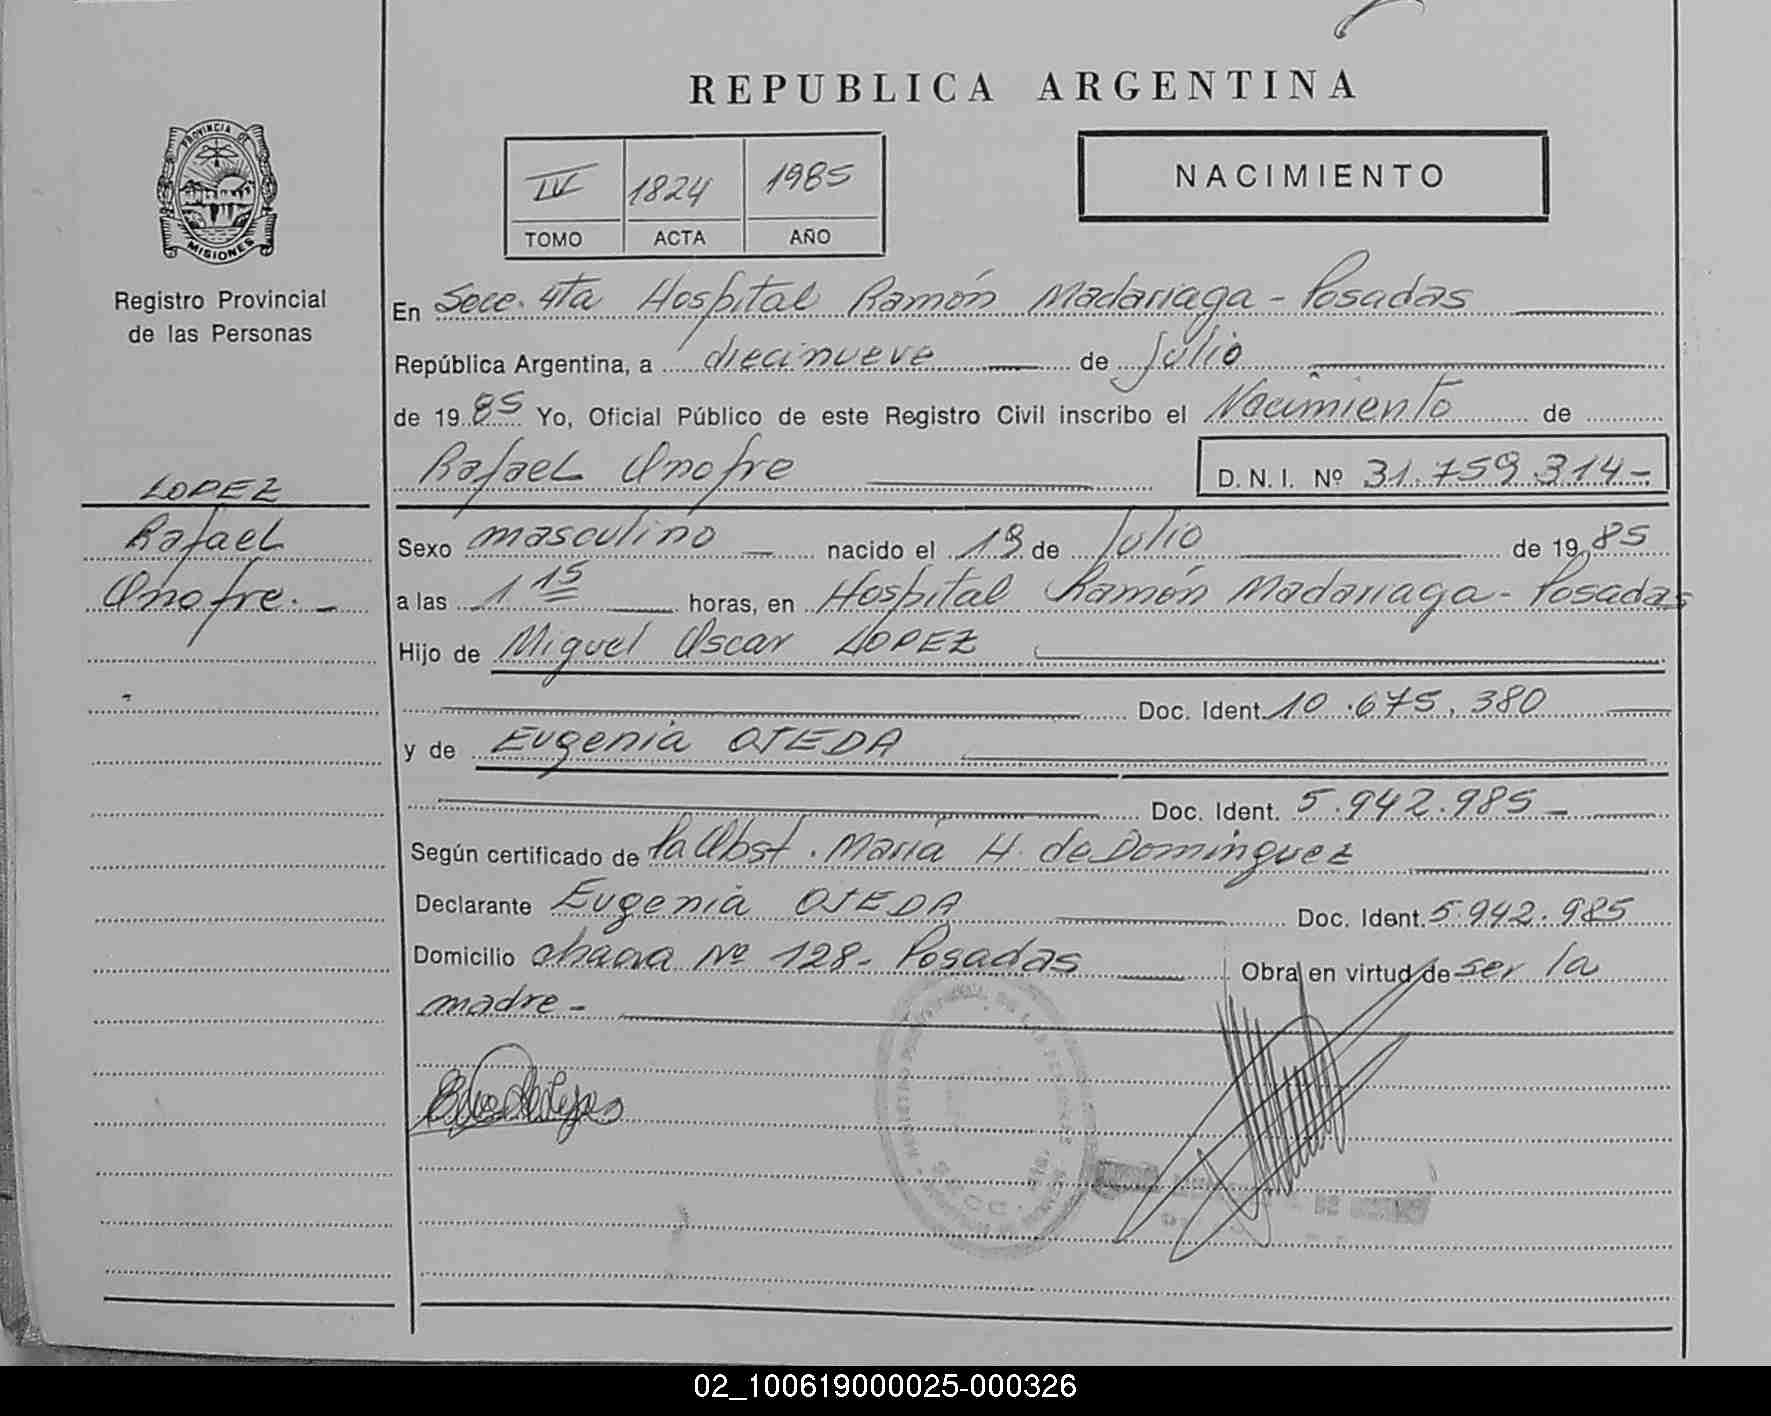 REPUBLICA ARGENTINA
PROVINCIA DE
MISIONES
Registro Provincial
de las Personas
IV 1824 1985
TOMO ACTA AÑO
NACIMIENTO
En Secc. 4ta Hospital Ramón Madariaga - Posadas
República Argentina, a diecinueve de Julio
de 1985 Yo, Oficial Público de este Registro Civil inscribo el Nacimiento de
Rafael Onofre D. N. I. Nº 31.759.314-
LOPEZ
Rafael
Onofre. -
Sexo masculino nacido el 19 de Julio de 1985
a las 1 15 horas, en Hospital Ramón Madariaga - Posadas
Hijo de Miguel Oscar LOPEZ
Doc. Ident. 10.675.380
y de Eugenia OJEDA
Doc. Ident. 5.942.985 -
Según certificado de la Obst. Maria H. de Dominguez
Declarante Eugenia OJEDA Doc. Ident. 5.942.985
Domicilio chacra Nº 128- Posadas Obra en virtud de ser la
madre -
02_100619000025-000326